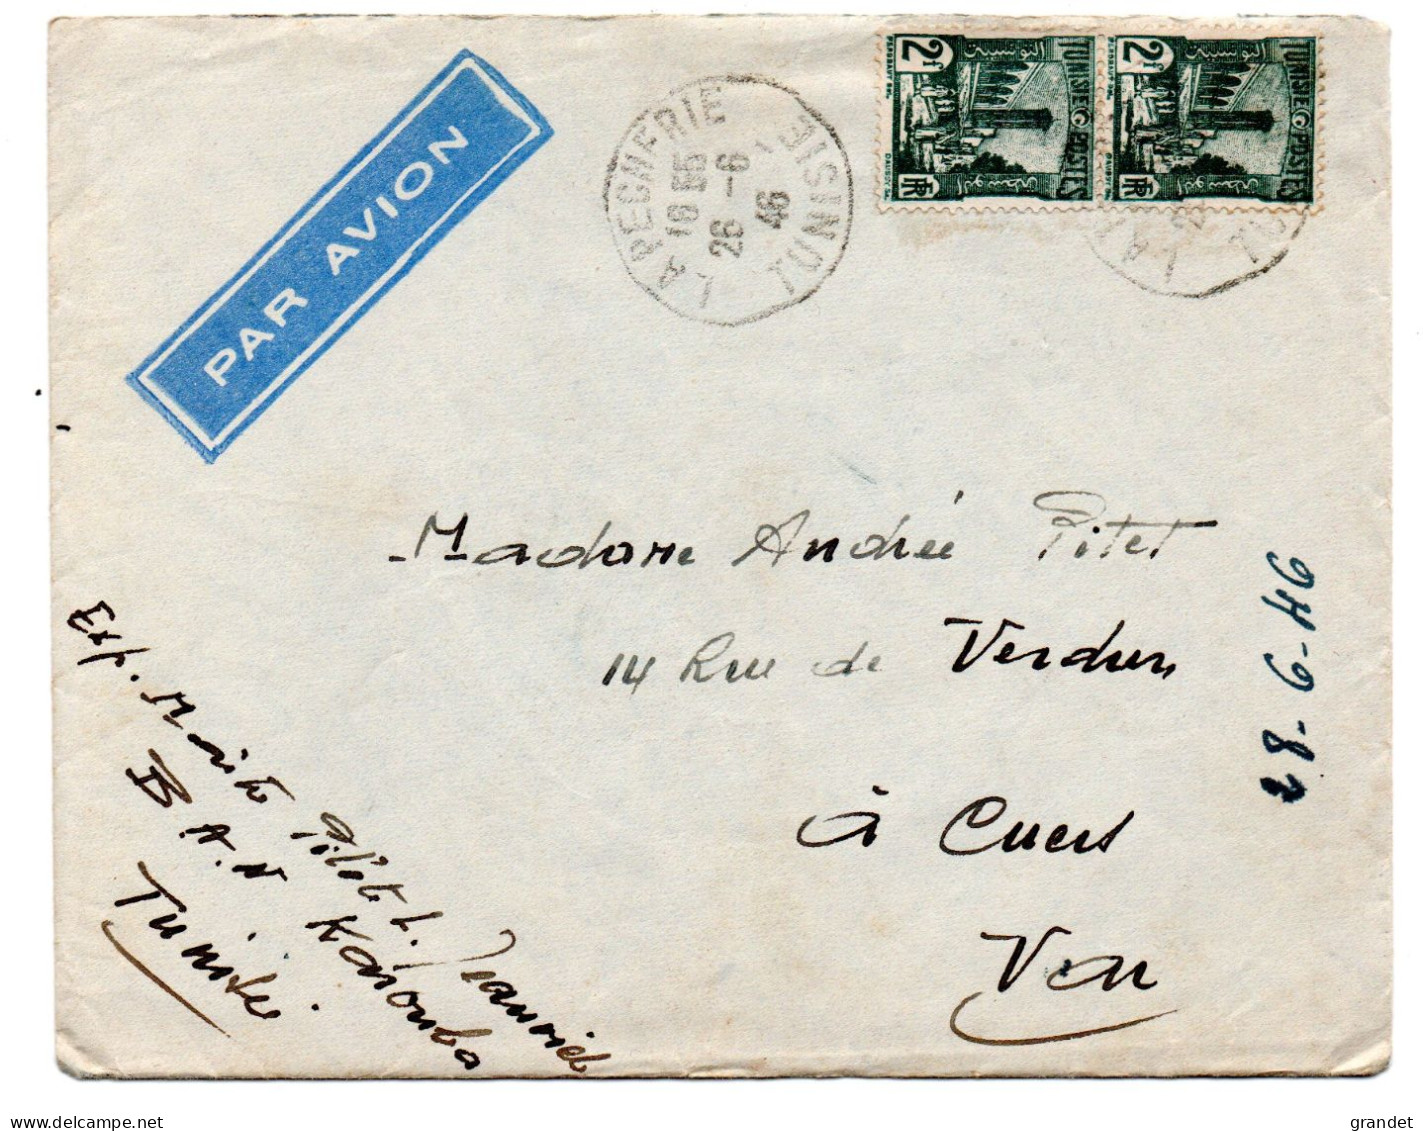 PAR AVION
LA PECHERIE
TUNISIE
16 55
26 - 6
46
2F
TUNISIE POSTES
RF
2F
TUNISIE POSTES
RF
LA P
Madame André Pitet
14 Rue de Verdun
à Cuers
Var
28-6-46
Exp. Maître Pilote L.
B.A.N Karouba
Tunisie
www.delcampe.net
grandet